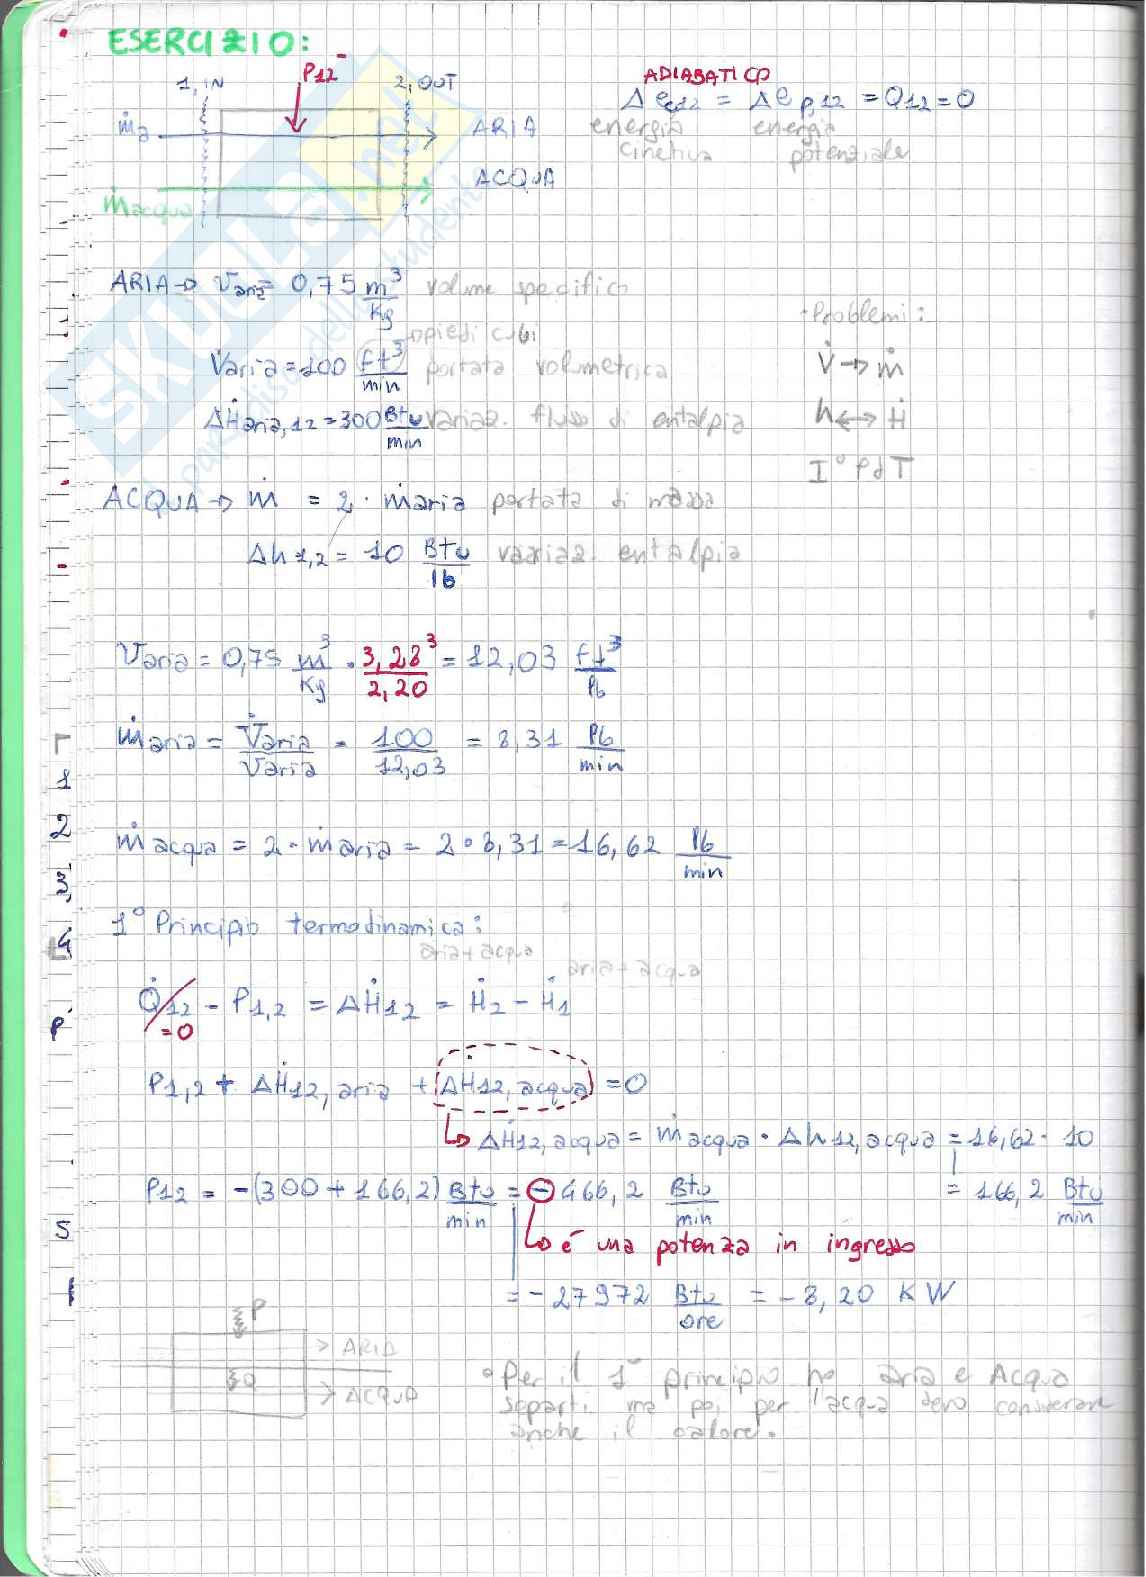 ESERCIZIO:
1, IN
P12⁻
2, OUT
ADIABATICO
Δec12 = Δep12 = Q12 = 0
energia cinetica
energia potenziale
ṁa
ARIA
ACQUA
ṁacqua
ARIA → Varia = 0,75 m³/Kg volume specifico
piedi cubi
V̇aria = 100 ft³/min portata volumetrica
ΔḢaria,12 = 300 Btu/min variaz. flusso di entalpia
Problemi:
V̇ → ṁ
h ↔ Ḣ
I° PdT
ACQUA → ṁ = 2 · ṁaria portata di massa
Δh1,2 = 10 Btu/lb variaz. entalpia
Varia = 0,75 m³/Kg · 3,28³/2,20 = 12,03 ft³/lb
ṁaria = V̇aria/Varia = 100/12,03 = 8,31 lb/min
ṁacqua = 2 · ṁaria = 2 · 8,31 = 16,62 lb/min
1° Principio termodinamica:
aria + acqua
aria + acqua
Q̇12 - P1,2 = ΔḢ12 = Ḣ2 - Ḣ1
=0
P1,2 + ΔḢ12, aria + ΔḢ12, acqua = 0
↳ ΔḢ12, acqua = ṁacqua · Δh12, acqua = 16,62 · 10
= 166,2 Btu/min
P12 = -(300 + 166,2) Btu/min = - 466,2 Btu/min
↳ è una potenza in ingresso
= - 27972 Btu/ore = - 8,20 KW
P
→ ARIA
Q
→ ACQUA
• Per il 1° principio ho aria e Acqua
separti ma poi per l'acqua devo considerare
anche il calore.